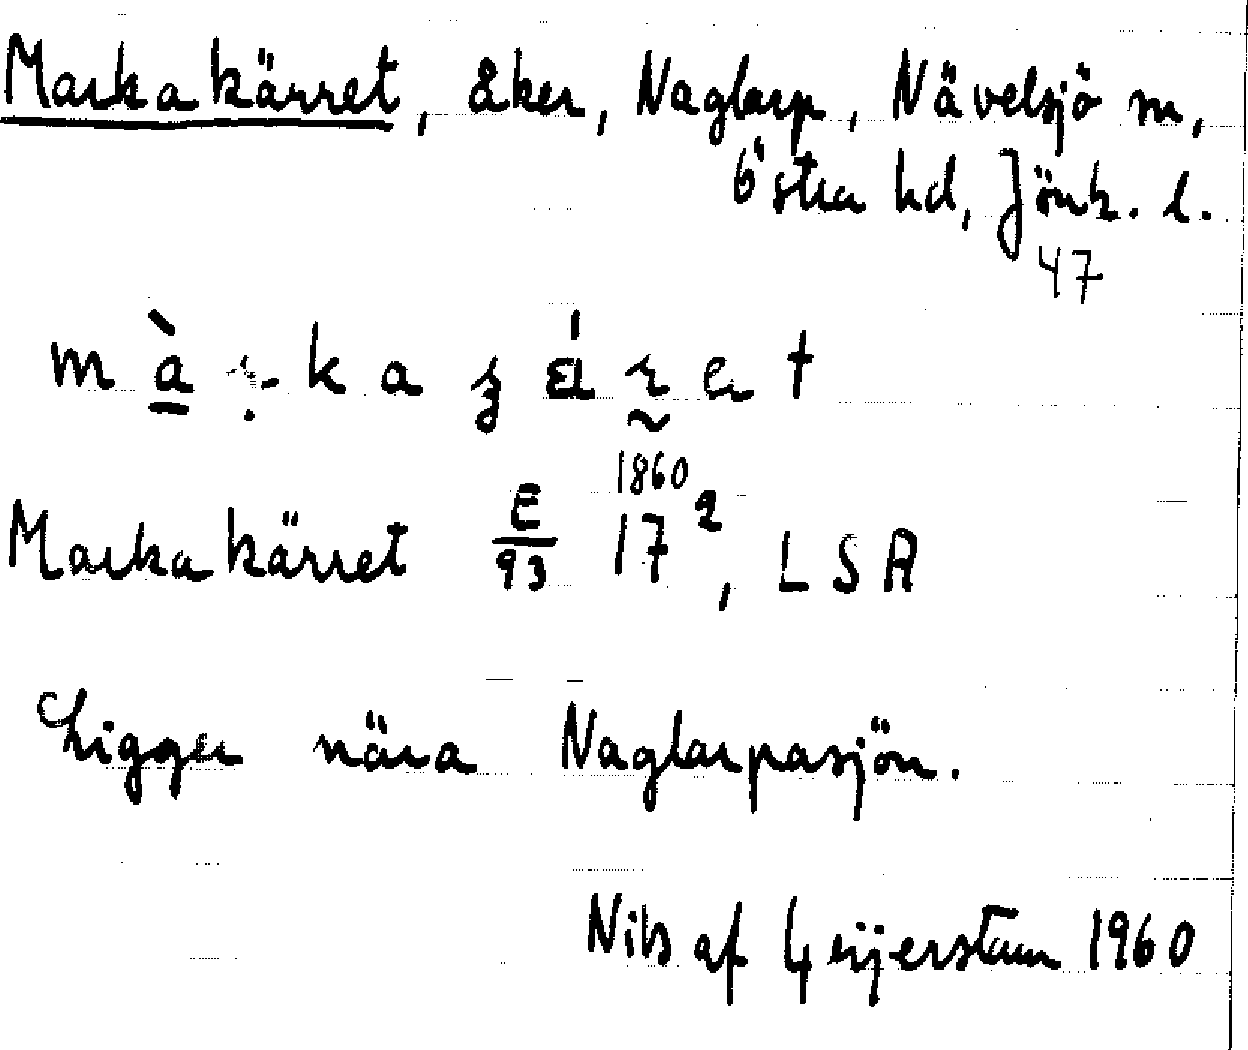 Markakärret, åker, Naglarp, Nävelsjö sn,
Östra hd, Jönk. l.
47
Markakärret E/93 17², LSA
1860
Ligger nära Naglarpasjön.
Nils af Geijerstam 1960